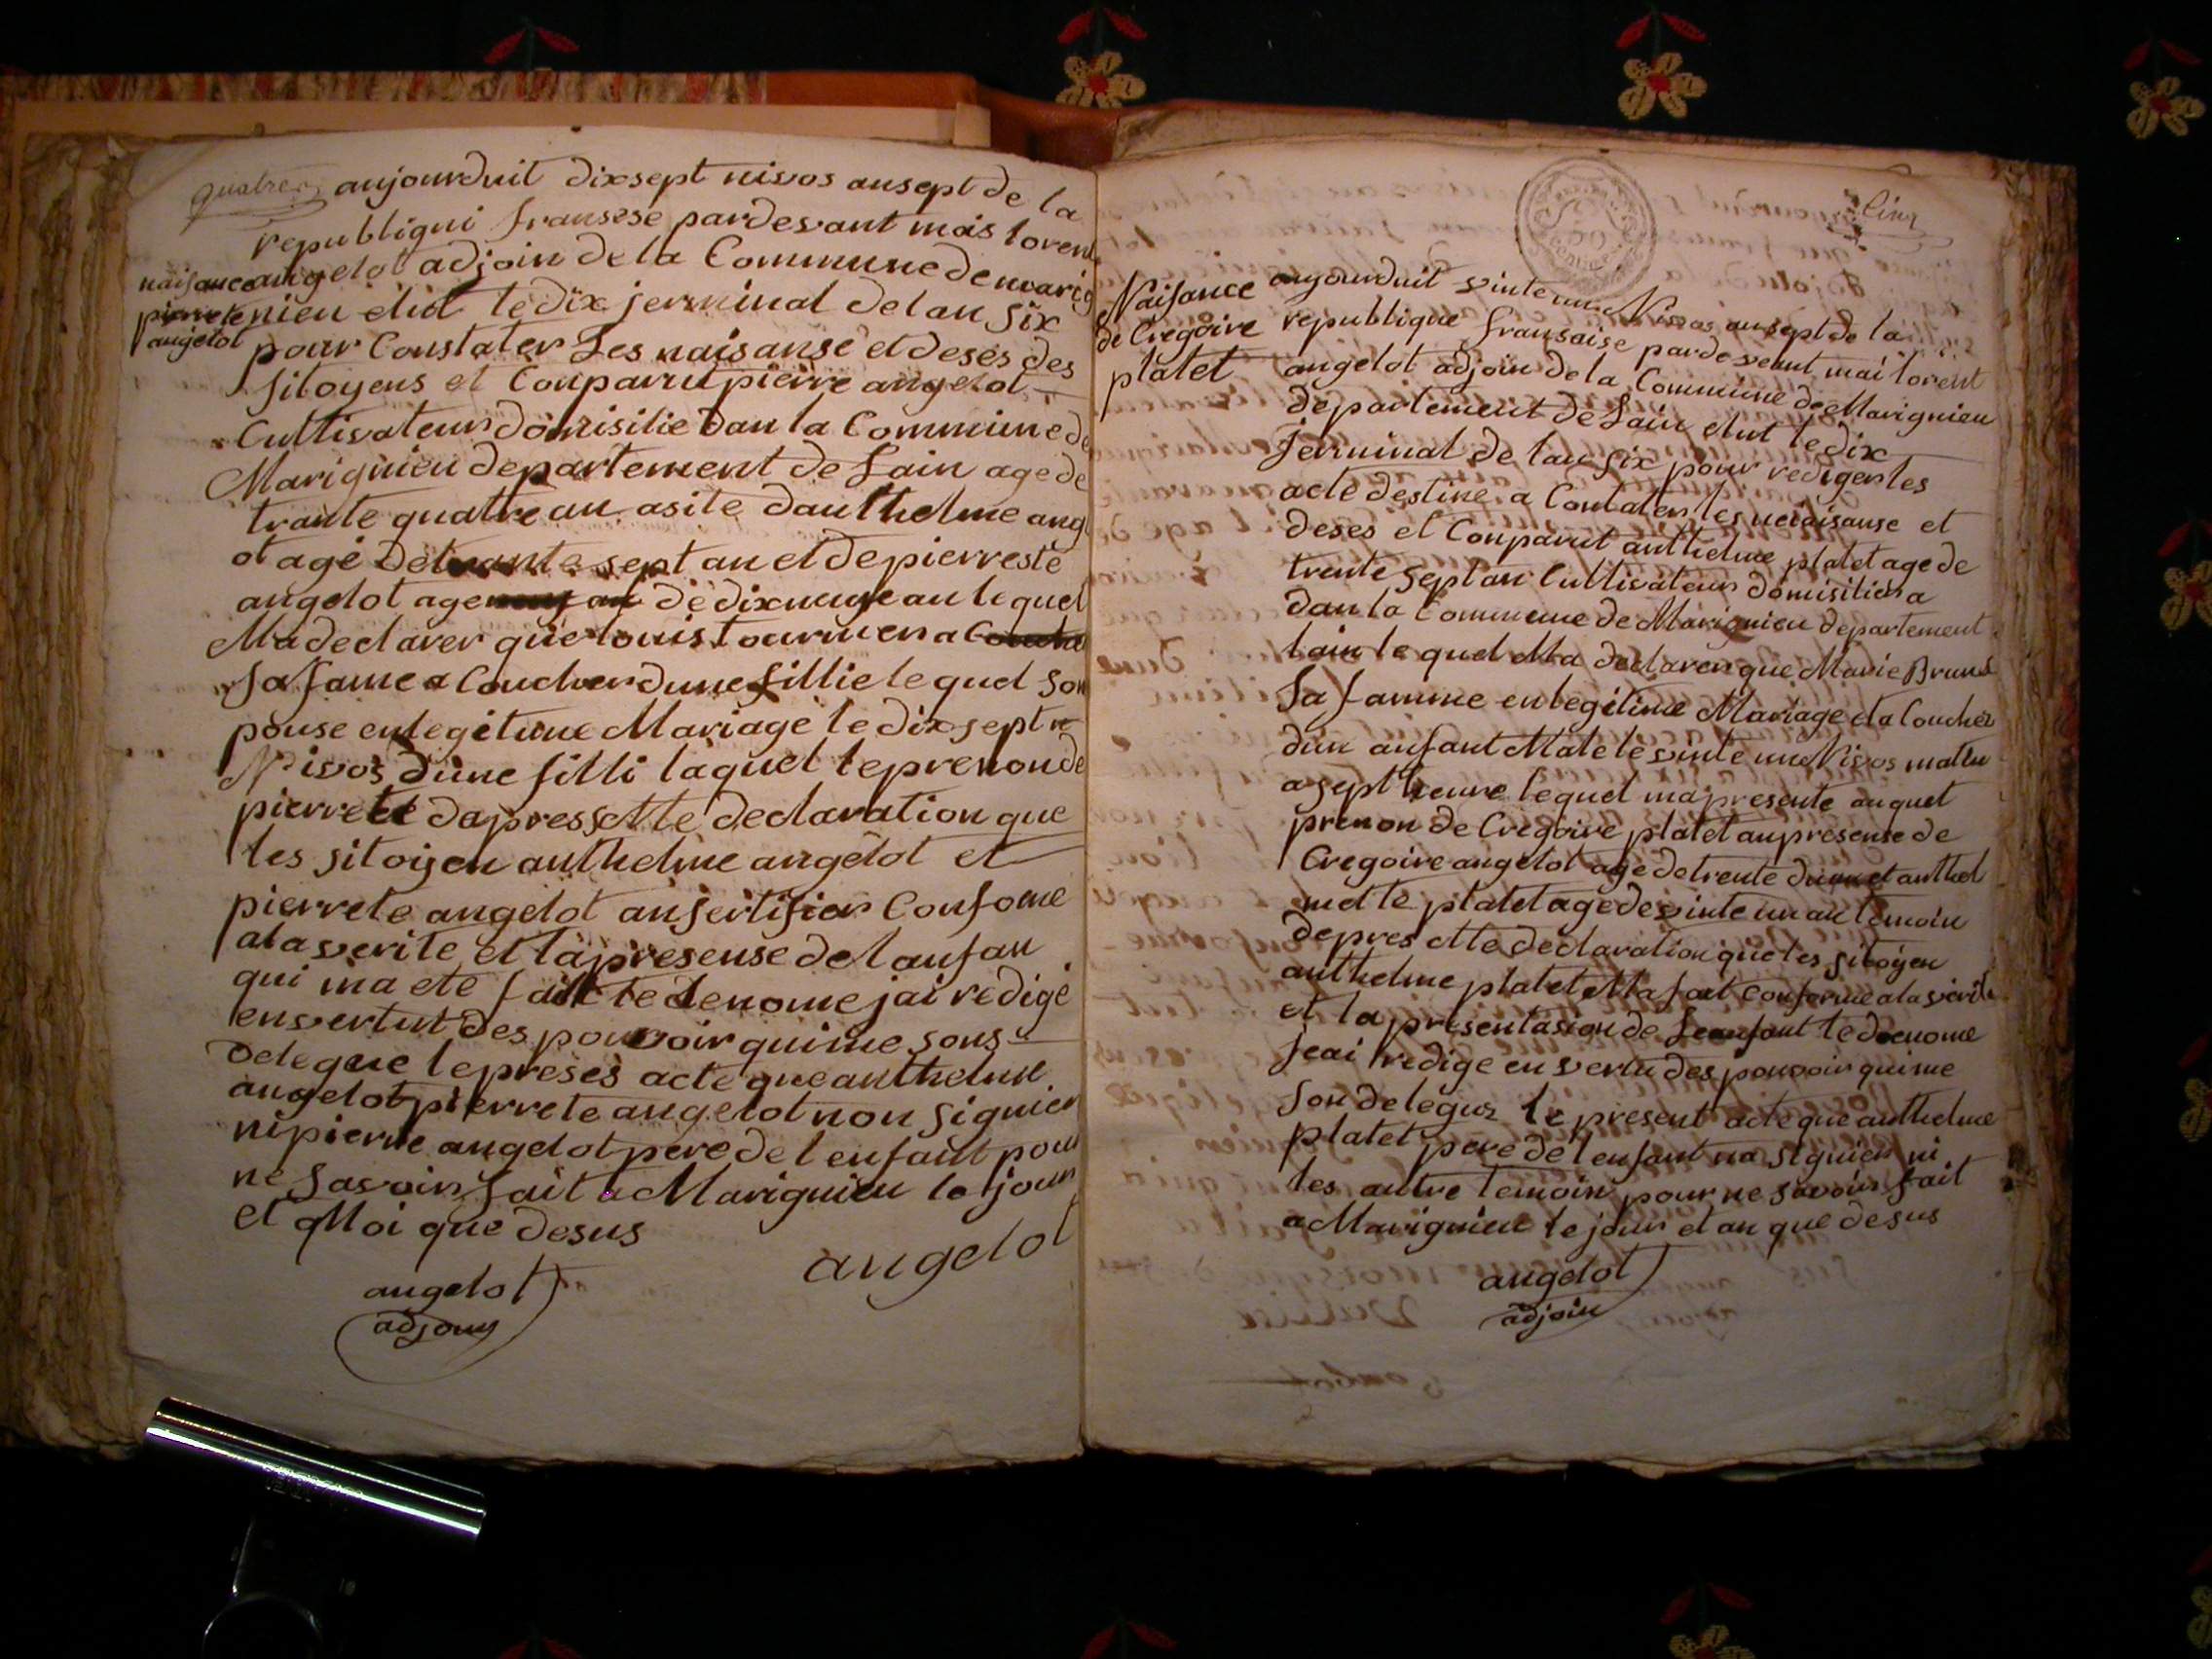 quatre
aujourduit dixsept nivos ansept de la
republiqui fransese pardesvant mais lorent
naisance
pierrete
angelot
angelot adjoin de la Commune de marig
nieu elut le dix jerminal de lan six
pour Constater Les naisanse et deses des
sitoyens et Conparut pierre angelot
Cultivateur domisilie dan la Commune de
Marignieu departement de Lain age de
trante quatre an asite danthelme ang
ot age de trante sept an et de pierreste
angelot age de dix neuf an le quel
Ma declarer que louis tournier a
sa fame a Coucher dune fillie le quel son
pouse enlegitime Mariage le dix sept n
Nivos dune filli laquel le prenon de
pierrete dapres sette declaration que
les sitoyen anthelme angelot et
pierrete angelot an sertifier Confome
ala verite et la presense de lanfan
qui ma ete fait le denome jai redige
envertut des pouvoir qui me sons
delegue le preses acte que anthelme
angelot pierrete angelot non signier
ni pierre angelot pere de lenfant pour
ne savoir fait a Marignieu le jour
et Moi que desus
angelot
angelot
adjoin
Cinq
Naisance
de Cregoire
platet
aujourduit vinte une Nivos ansept de la
republique fransaise pardesvant mai lorent
angelot adjoin de la Commune de Marignieu
departement de Lain elut le dix
jerminal de lan six pour rediger les
acte destine a Contater les neaisanse et
deses et Conparut anthelme platet age de
trente sept an Cultivateur domisilier a
dan la Commune de Marignieu departement
lain le quel Ma declarer que Marie Brunet
sa famme en legitime Mariage et a Coucher
dun anfant Male le vinte une Nivos matin
a sept heure lequel ma presente auquel
prenon de Cregoire platet anpresense de
Cregoire angelot age de trente et anthel
melle platet age de vinte un an temoin
depres ette declaration que les sitoyen
anthelme platet Ma fait Conforme ala verite
et la presentasion de Leanfant le denome
jeai redige en vertu des pouvoir qui me
son delegue le present acte que anthelme
platet pere de lenfant na signier ni
les autre temoin pour ne savoir fait
a Marignieu le jour et an que desus
angelot
adjoin